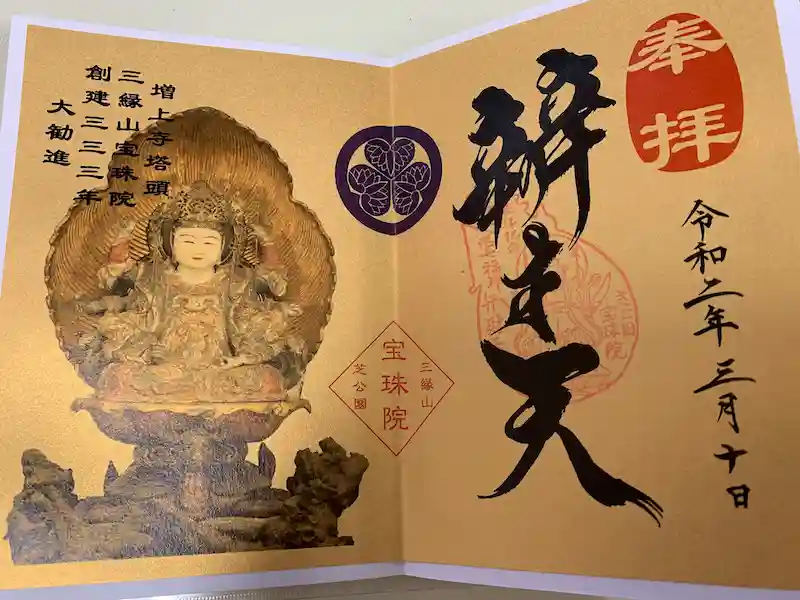 奉拝
令和二年三月十日
辨才天
増上寺塔頭
三縁山宝珠院
創建三三三年
大勧進
三縁山
宝珠院
芝公園